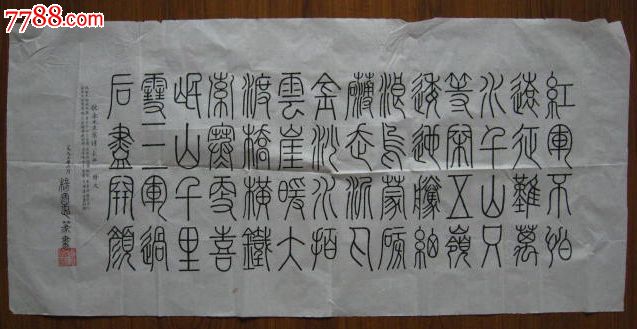 7788.com
紅軍不怕
遠征難萬
水千山只
等閑五嶺
逶迤騰細
浪烏蒙磅
礴走泥丸
金沙水拍
雲崖暖大
渡橋橫鐵
索寒更喜
岷山千里
雪三軍過
后盡開顏
篆書